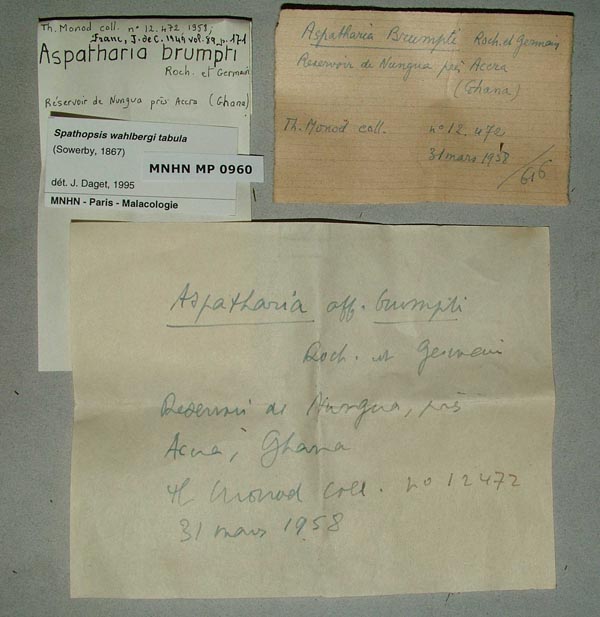 Th. Monod coll. n° 12.472 1958,
Franc, J. de C. 1949 vol. 89, p. 171
Aspatharia brumpti
Roch. et Germain
Réservoir de Nungua près Accra (Ghana)
Spathopsis wahlbergi tabula
(Sowerby, 1867)
MNHN MP 0960
dét. J. Daget, 1995
MNHN - Paris - Malacologie
Aspatharia Brumpti Roch. et Germain
Reservoir de Nungua près Accra
(Ghana)
Th. Monod coll. n° 12.472
31 mars 1958
616
Aspatharia aff. brumpti
Roch. et Germain
Reservoir de Nungua, près
Accra, Ghana
Th Monod coll. n° 12472
31 mars 1958